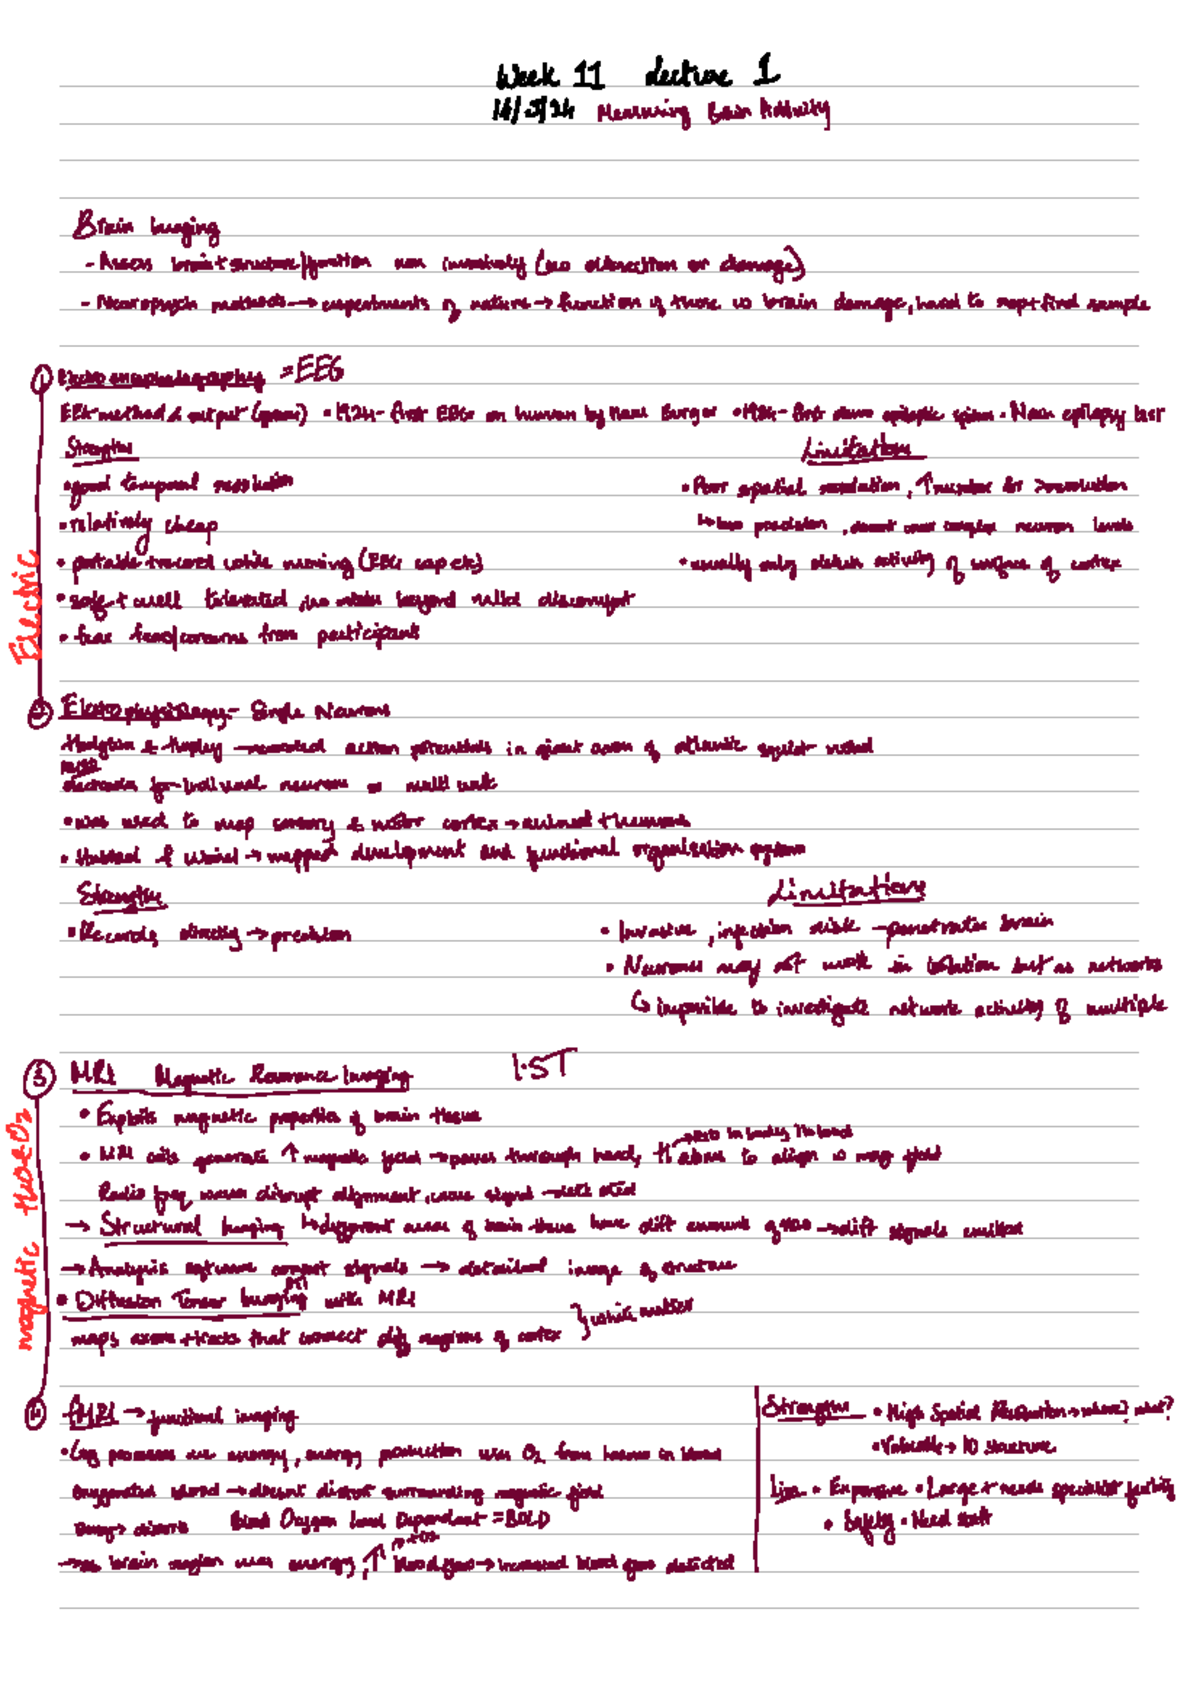 Week 11 Lecture 1
Measuring Brain Activity
Brain Imaging
- Assess brain structure/function non invasively (no dissection or damage)
- Neuropsych methods → experiments of nature → function of those w brain damage, hard to rep + find sample
① Electroencephalography = EEG
EEG method & output (graph) • 1924 - first EEG on human by Hans Burger • 1934 - first epileptic
Strengths
Limitation
• good temporal resolution
• Poor spatial resolution, ↑ number for > resolution
• relatively cheap
↳ low precision, neuron levels
• portable + record while moving (EEG cap etc)
• usually only obtain activity of surface of cortex
• safe + well tolerated, no risks beyond mild discomfort
• few fears/concerns from participant
Electric
② Electrophysiology - Single Neurons
Hodgkin & Huxley → recorded action potentials in giant axon of atlantic squid
electrodes for individual neurons or multi unit
• was used to map sensory & motor cortex → animal + humans
• Hubbel & Wiesel → mapped development and functional organisation
Strengths
Limitations
• Records directly → precision
• Invasive, infection risk → penetrate brain
• Neurons may not work in isolation but as networks
↳ impossible to investigate network activity of multiple
③ MRI Magnetic Resonance Imaging 1.5T
• Exploits magnetic properties of brain tissue
→ H2O in body, blood
• MRI coils generate ↑ magnetic field → passes through head, H atoms to align w mag field
Radio freq waves disrupt alignment, cause signal → detected
→ Structural Imaging ↳ different areas of brain tissue have diff amount of H2O → diff signals emitted
→ Analysis software convert signals → detailed image of structure
• Diffusion Tensor Imaging DTI with MRI
maps axon + tracks that connect diff regions of cortex } white matter
magnetic those O2
④ fMRI → functional imaging
Strengths • High Spatial Resolution → where? what?
• Cog processes use energy, energy production uses O2 from haemo in blood
• Valuable → 10 structure
Oxygenated blood → doesnt distort surrounding magnetic field
Lim • Expensive • Large + needs specialist facility
Deoxy → distorts Blood Oxygen Level Dependent = BOLD
• Safety • Need staff
→ as brain region uses energy, ↑ blood flow → increased blood flow detected